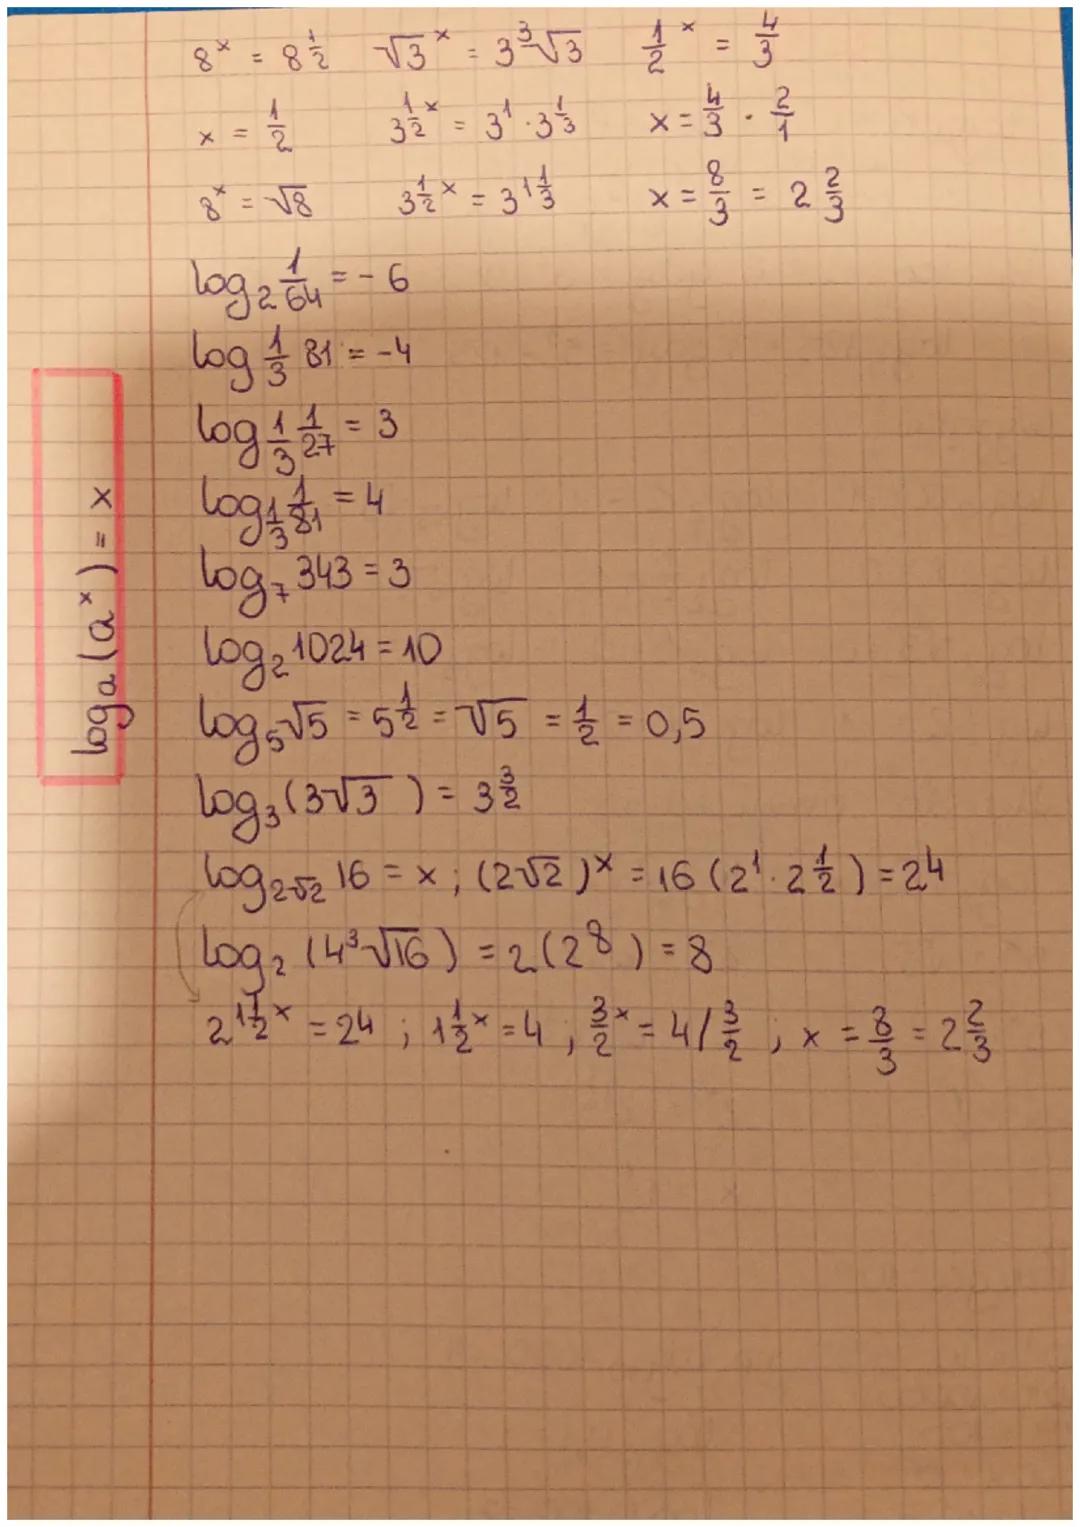 8ˣ = 8^½ √3ˣ = 3∛3 ½ˣ = 4/3
x = 1/2 3^½ˣ = 3¹ · 3^⅓ x = 4/3 · 2/1
8ˣ = √8 3^½ˣ = 3^1⅓ x = 8/3 = 2 2/3
log₂ 1/64 = - 6
log 1/3 81 = -4
log 1/3 1/27 = 3
log 1/3 1/81 = 4
log₇ 343 = 3
log₂ 1024 = 10
log₅ √5 = 5^½ = √5 = 1/2 = 0,5
log₃ (3√3) = 3^3/2
log₂√₂ 16 = x ; (2√2)ˣ = 16 (2¹ · 2^½) = 2⁴
log₂ (4³√16) = 2 (2⁸) = 8
2^1½ˣ = 24 ; 1½ˣ = 4 ; 3/2ˣ = 4 / 3/2 ; x = 8/3 = 2 2/3
logₐ (aˣ) = x